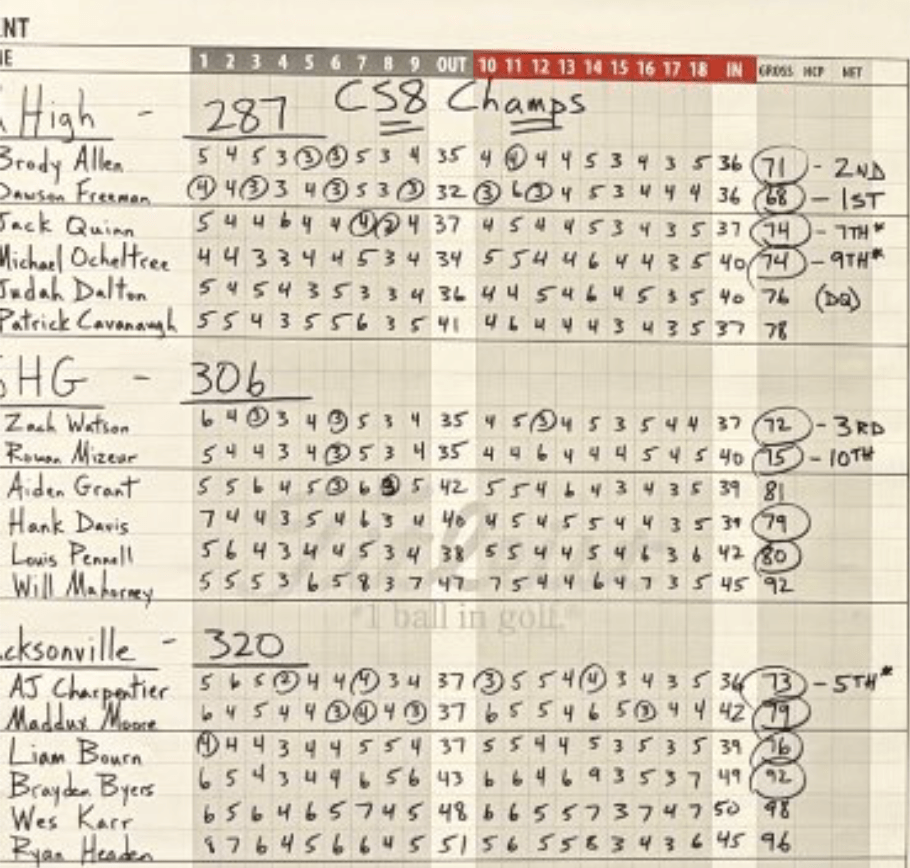 NT
E 1 2 3 4 5 6 7 8 9 OUT 10 11 12 13 14 15 16 17 18 IN GROSS HCP NET
High - 287 CS8 Champs
Brody Allen 5 4 5 3 3 3 5 3 4 35 4 4 4 4 5 3 4 3 5 36 71 - 2ND
Dawson Freeman 4 4 3 3 4 3 5 3 3 32 3 6 3 4 5 3 4 4 4 36 68 - 1ST
Jack Quinn 5 4 4 6 4 4 4 2 4 37 4 5 4 4 5 3 4 3 5 37 74 - 7TH*
Michael Ocheltree 4 4 3 3 4 4 5 3 4 34 5 5 4 4 6 4 4 3 5 40 74 - 9TH*
Judah Dalton 5 4 5 4 3 5 3 3 4 36 4 4 5 4 6 4 5 3 5 40 76 (DQ)
Patrick Cavanaugh 5 5 4 3 5 5 6 3 5 41 4 6 4 4 4 3 4 3 5 37 78
SHG - 306
Zach Watson 6 4 3 3 4 3 5 3 4 35 4 5 3 4 5 3 5 4 4 37 72 - 3RD
Rowan Mizeur 5 4 4 3 4 3 5 3 4 35 4 4 6 4 4 4 5 4 5 40 75 - 10TH
Aiden Grant 5 5 6 4 5 3 6 3 5 42 5 5 4 6 4 3 4 3 5 39 81
Hank Davis 7 4 4 3 5 4 6 3 4 40 4 5 4 5 5 4 4 3 5 39 79
Louis Pennell 5 6 4 3 4 4 5 3 4 38 5 5 4 4 5 4 6 3 6 42 80
Will Mahorney 5 5 5 3 6 5 8 3 7 47 7 5 4 4 6 4 7 3 5 45 92
#1 ball in golf.®
cksonville - 320
AJ Charpentier 5 6 5 2 4 4 4 3 4 37 3 5 5 4 4 3 4 3 5 36 73 - 5TH*
Maddux Moore 6 4 5 4 4 3 4 4 3 37 6 5 5 4 6 5 3 4 4 42 79
Liam Bourn 4 4 4 3 4 4 5 5 4 37 5 5 4 4 5 3 5 3 5 39 76
Brayden Byers 6 5 4 3 4 4 6 5 6 43 6 6 4 6 9 3 5 3 7 49 92
Wes Karr 6 5 6 4 6 5 7 4 5 48 6 6 5 5 7 3 7 4 7 50 98
Ryan Headen 8 7 6 4 5 6 6 4 5 51 5 6 5 5 8 3 4 3 6 45 96